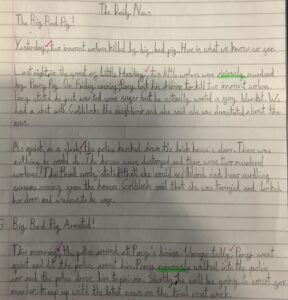 The Daily News
The Big Bad Pig!
Yesterday, two innocent wolves killed by big, bad pig. Here is what we know so far.
Last night in the quiet of Little Healing two little wolves were viciously murdered
by Percy Pig. On Friday evening Percy lost his to kill two innocent wolves.
Percy stated he just wanted some sugar but he actually wanted a We
had a chat with Goldilocks the neighbour and she said she was devastated about the
news.
As quick as a flash, the police knocked down the brick house's door. There was
nothing he could do. The houses were destroyed and there were two murdered
wolves! The third wolf stated that she could and hear
screams coming from the house. Goldilocks said that she was terrified and locked
her door and windows to be safe.
Big Bad Pig Arrested!
This morning, the police arrived at Percy's house. Unexpectedly, Percy went
quiet and let the police arrest him. Percy walked into the police
car and the police drove him to prison. Shortly, he will be going to court for
murder. Keep up with the latest news on the time next week.